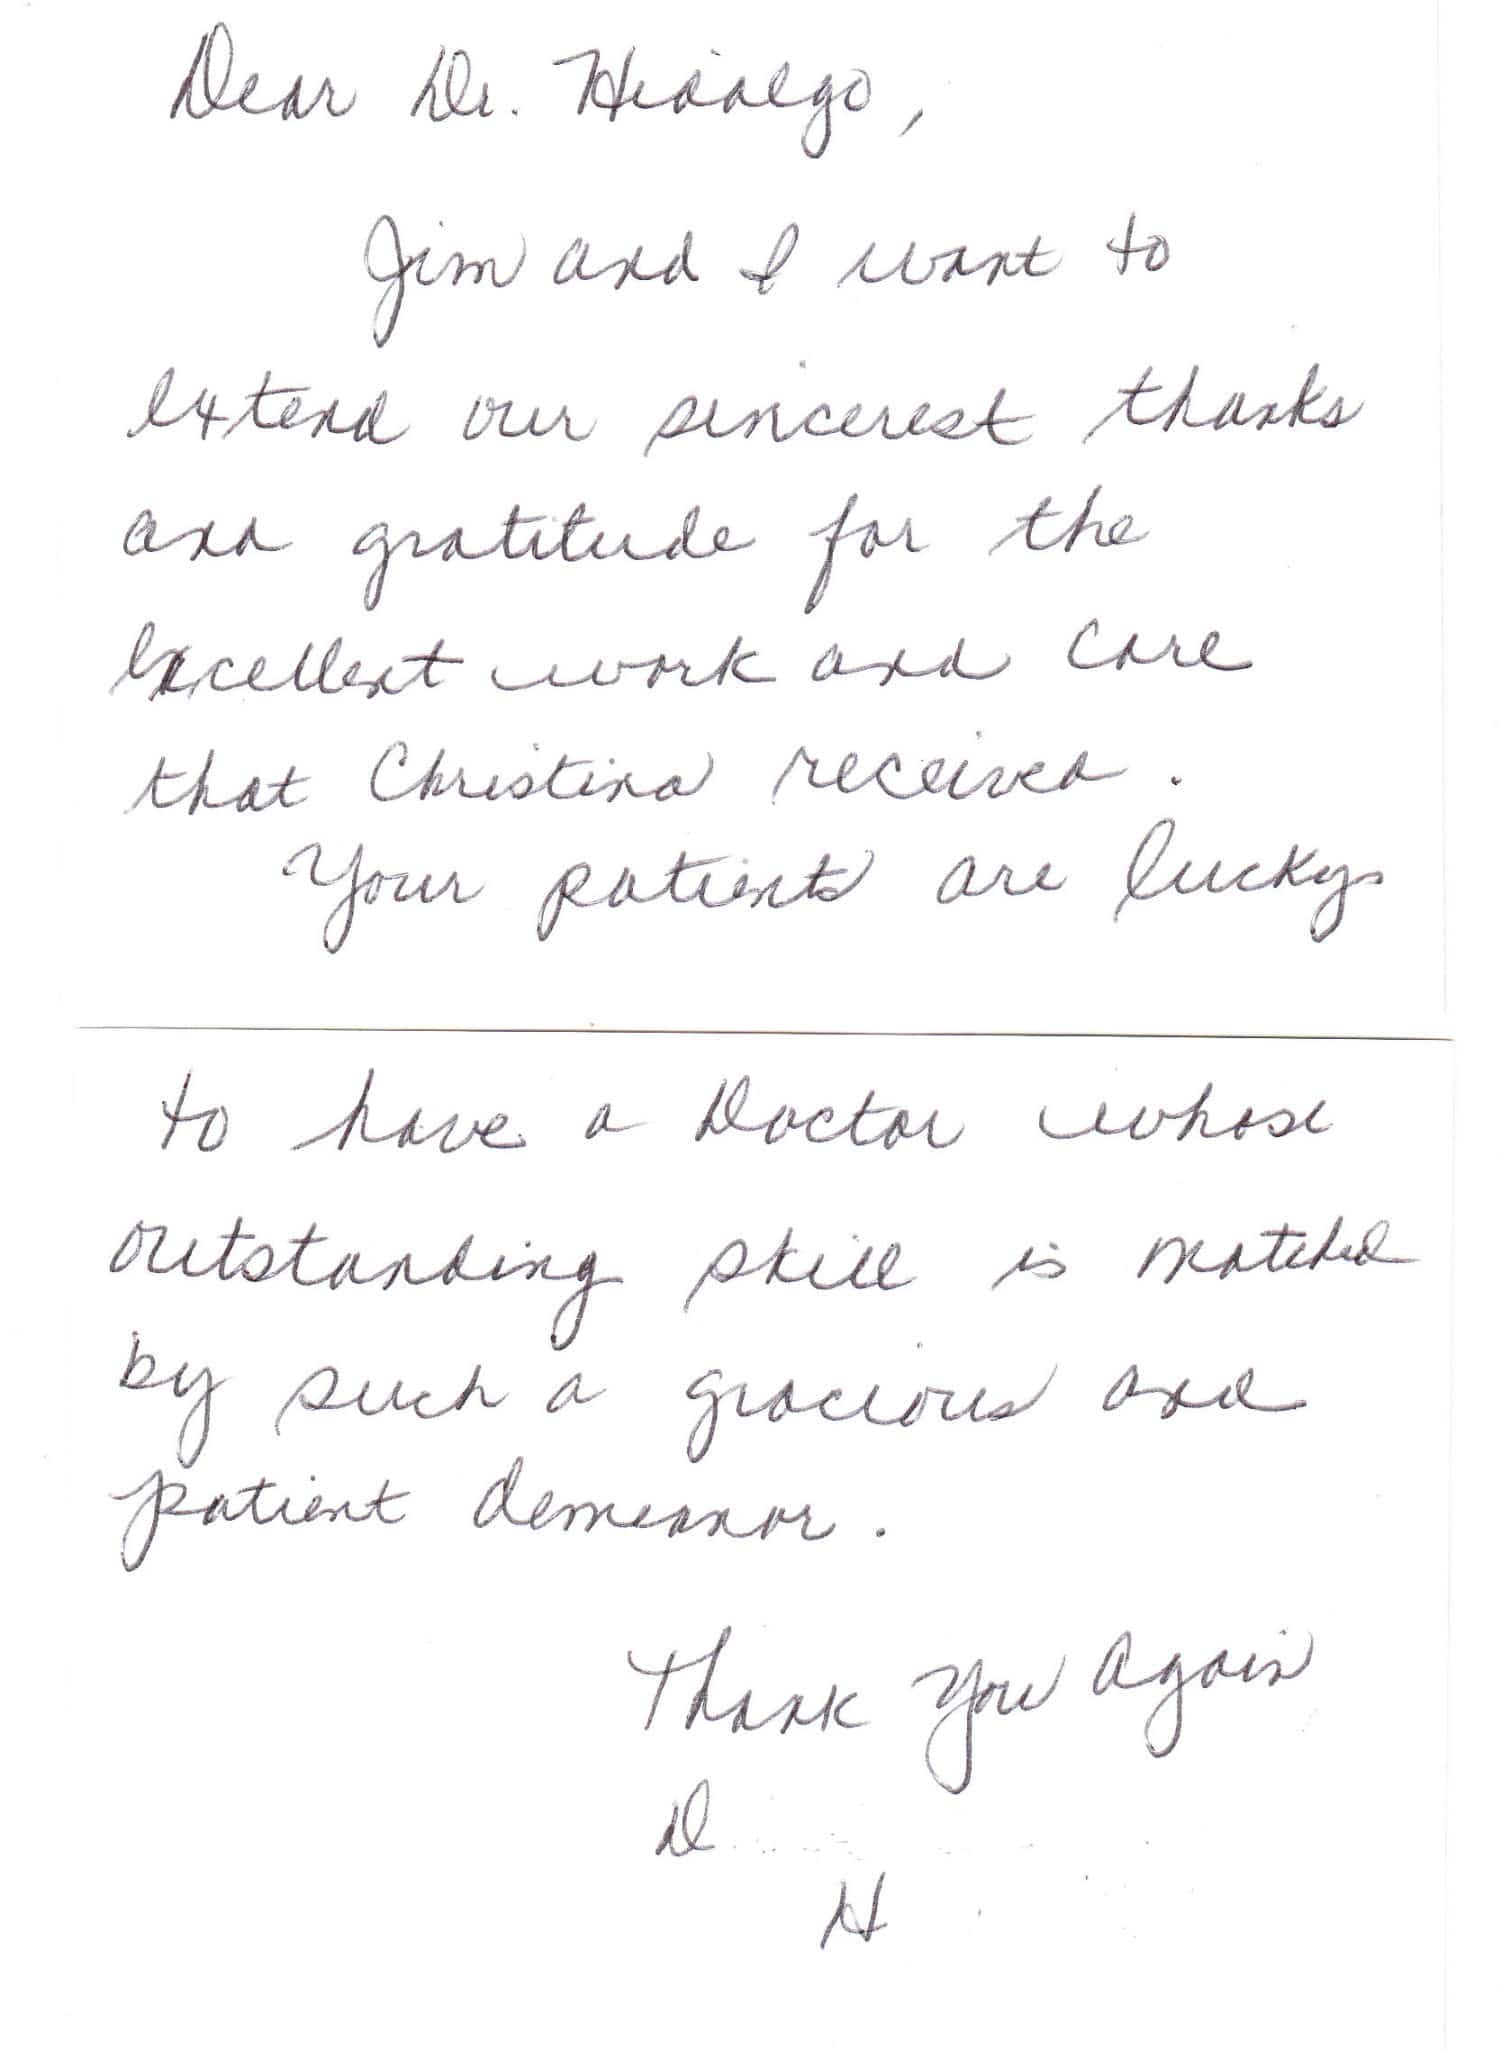 Dear Dr. Hidalgo,
Jim and I want to
extend our sincerest thanks
and gratitude for the
excellent work and care
that Christina received.
Your patients are lucky
to have a Doctor whose
outstanding skill is matched
by such a gracious and
patient demeanor.
Thank You Again
D
H